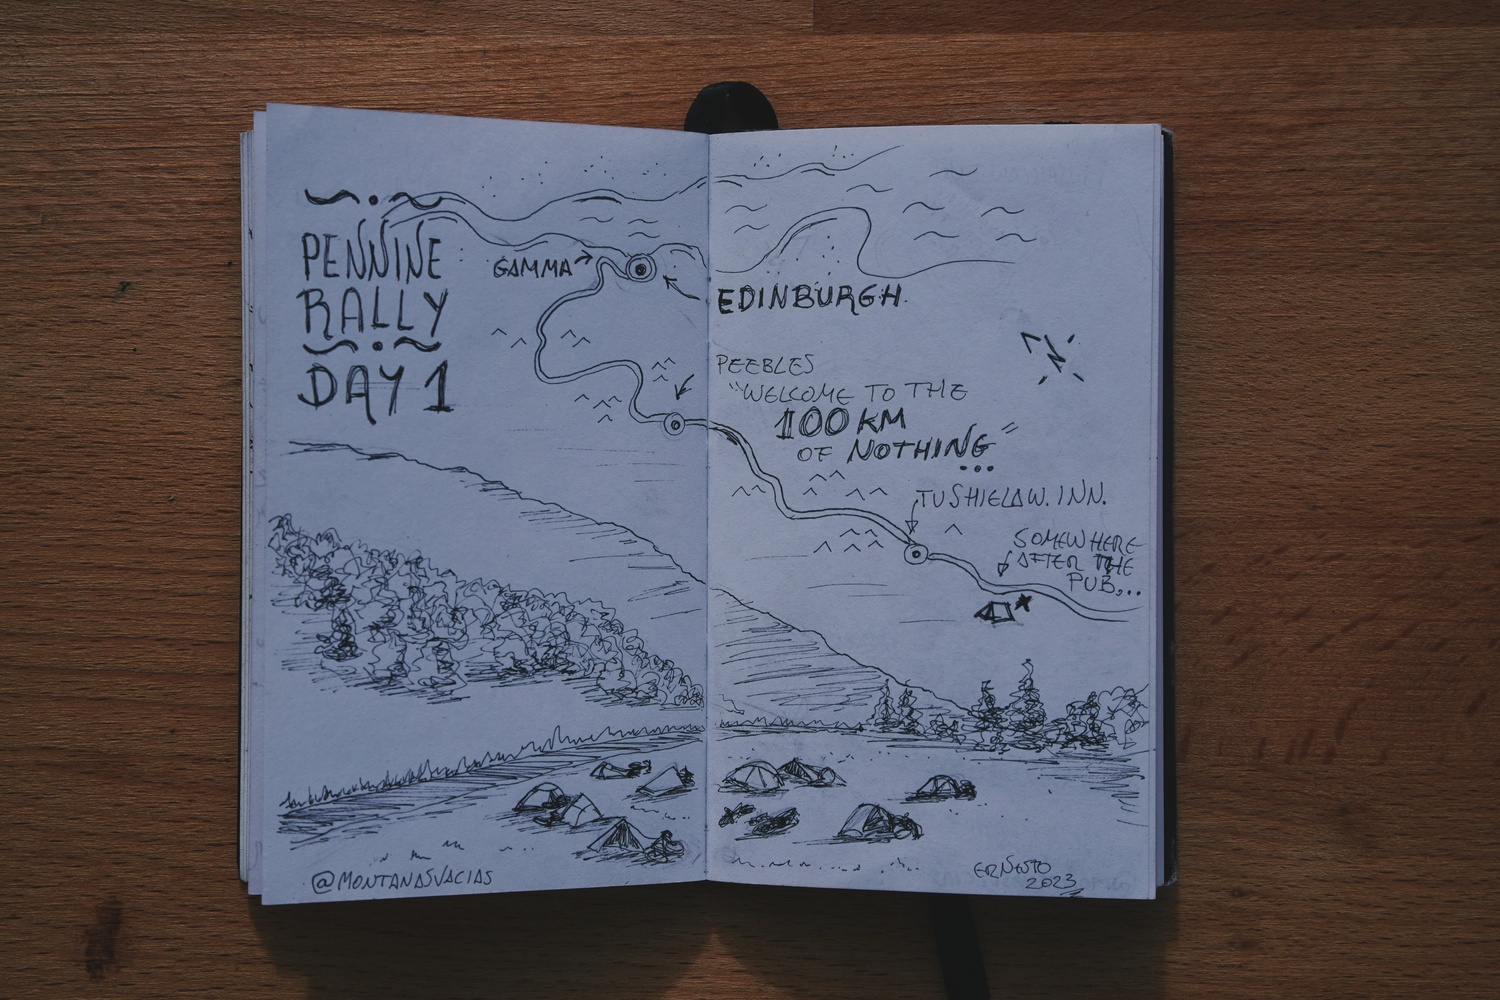 PENNINE
RALLY
DAY 1
GAMMA
EDINBURGH.
PEEBLES
"WELCOME TO THE
100 KM
OF NOTHING"
...
TUSHIELAW. INN.
SOMEWHERE
AFTER THE
PUB...
N
@MONTANASVACIAS
ERNESTO
2023